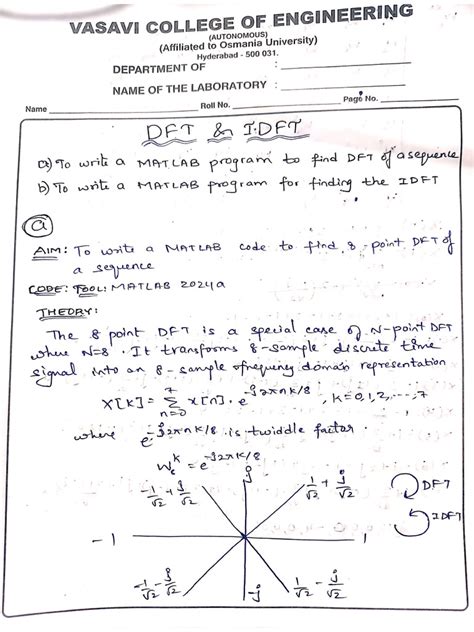 VASAVI COLLEGE OF ENGINEERING
(AUTONOMOUS)
(Affiliated to Osmania University)
Hyderabad - 500 031.
DEPARTMENT OF :
NAME OF THE LABORATORY :
Name Roll No. Page No.
DFT & IDFT
a) To write a MATLAB program to find DFT of a sequence
b) To write a MATLAB program for finding the IDFT
a
AIM: To write a MATLAB code to find 8-point DFT of
a sequence
CODE: TOOL: MATLAB 2024a
THEORY:
The 8 point DFT is a special case of N-point DFT
where N=8. It transforms 8-sample discrete time
signal into an 8-sample frequency domain representation
X[k] = 7 Σ n=0 x[n]. e^-j2πnk/8, k=0,1,2,...,7
where e^-j2πnk/8 is twiddle factor.
k = e^-j2πk/8
-1/√2 + j/√2 j 1/√2 + j/√2 DFT
IDFT
-1 1
-1/√2 - j/√2 -j 1/√2 - j/√2